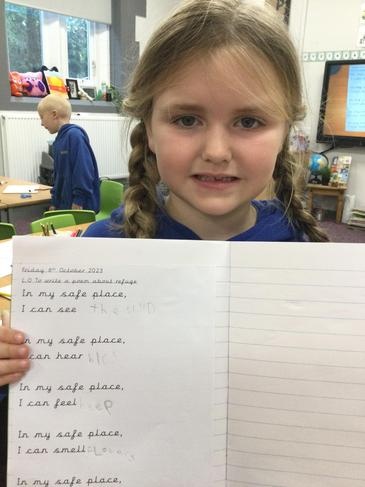 Friday 6th October 2023
L.O To write a poem about refuge
In my safe place,
I can see the sun
In my safe place,
can hear
In my safe place,
I can feel
In my safe place,
I can smell
In my safe place,